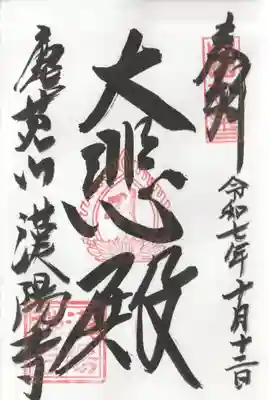 奉拝
令和七年十月十二日
大悲殿
鹿苑山漢陽寺